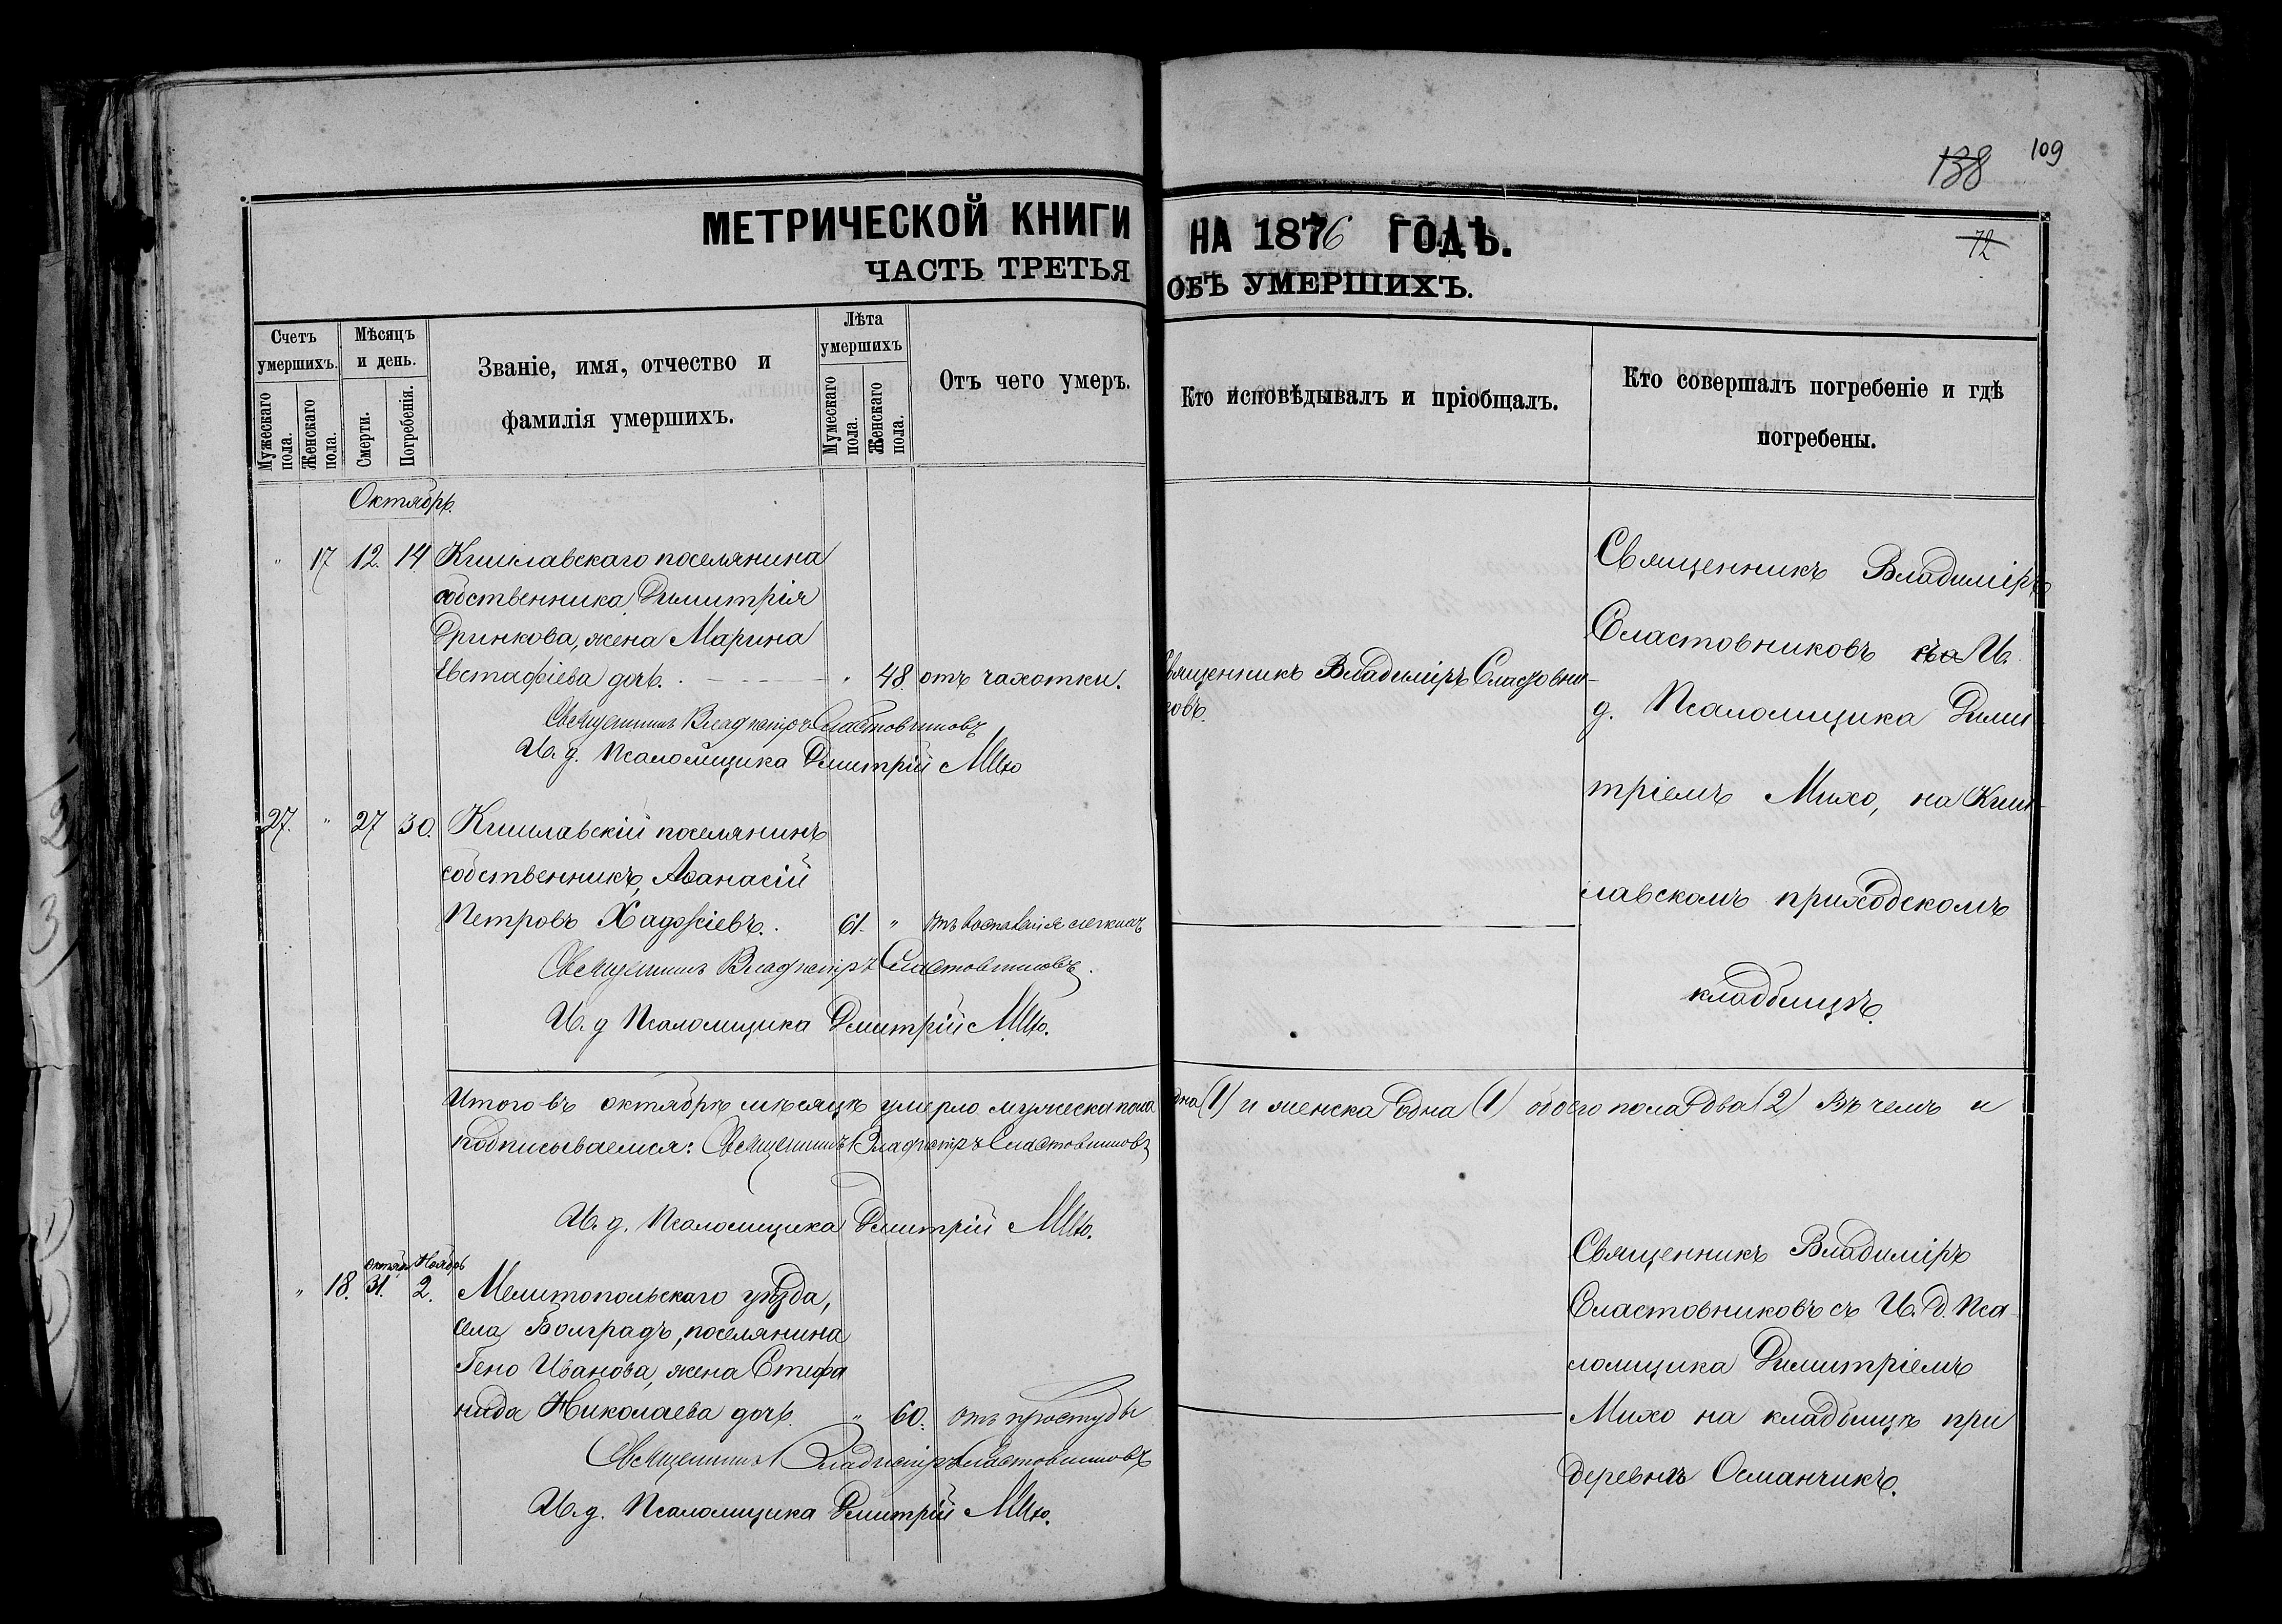 138 109
МЕТРИЧЕСКОЙ КНИГИ НА 1876 ГОДЪ.
72
ЧАСТЬ ТРЕТЬЯ ОБЪ УМЕРШИХЪ.
Счетъ умершихъ.
Мужескаго пола.
Женскаго пола.
Мѣсяцъ и день.
Смерти.
Погребенія.
Званіе, имя, отчество и
фамилія умершихъ.
Лѣта умершихъ
Мужескаго пола.
Женскаго пола.
Отъ чего умеръ.
Кто исповѣдывалъ и пріобщалъ.
Кто совершалъ погребеніе и гдѣ
погребены.
Октябрь.
" 17 12. 14. Кишлавскаго поселянина
собственника Димитрія
Дринкова, жена Марина
Евстафіева дочь. " 48. отъ чахотки.
Священникъ Владиміръ Сластовни-
ковъ.
Священникъ Владиміръ
Сластовниковъ съ И.
д. Псаломщика Дими-
тріемъ Михо, на Киш-
лавскомъ приходскомъ
кладбищѣ.
Священникъ Владиміръ Сластовниковъ
И. д. Псаломщика Дмитрій Михо
27. " 27 30. Кишлавскій поселянинъ
собственникъ, Аѳанасій
Петровъ Хаджіевъ. 61. " отъ воспаленія легкихъ
Священникъ Владиміръ Сластовниковъ.
И. д Псаломщика Дмитрій Михо.
Итого въ октябрѣ мѣсяцѣ умерло мужеска пола одна (1) и женска одна (1) обоего пола два (2) Въ чемъ и
подписываемся: Священникъ Владиміръ Сластовниковъ
И. д. Псаломщика Дмитрій Михо.
Октября Ноябрь
" 18. 31. 2. Мелитопольскаго уѣзда,
села Болградъ, поселянина
Гено Иванова, жена Стефа
нида Николаева дочь. " 60. отъ простуды
Священникъ Владиміръ
Сластовниковъ съ И. д. Пса-
ломщика Димитріемъ
Михо на кладбищѣ при
деревнѣ Османчикъ.
Священникъ Владиміръ Сластовниковъ
И. д. Псаломщика Дмитрій Михо.